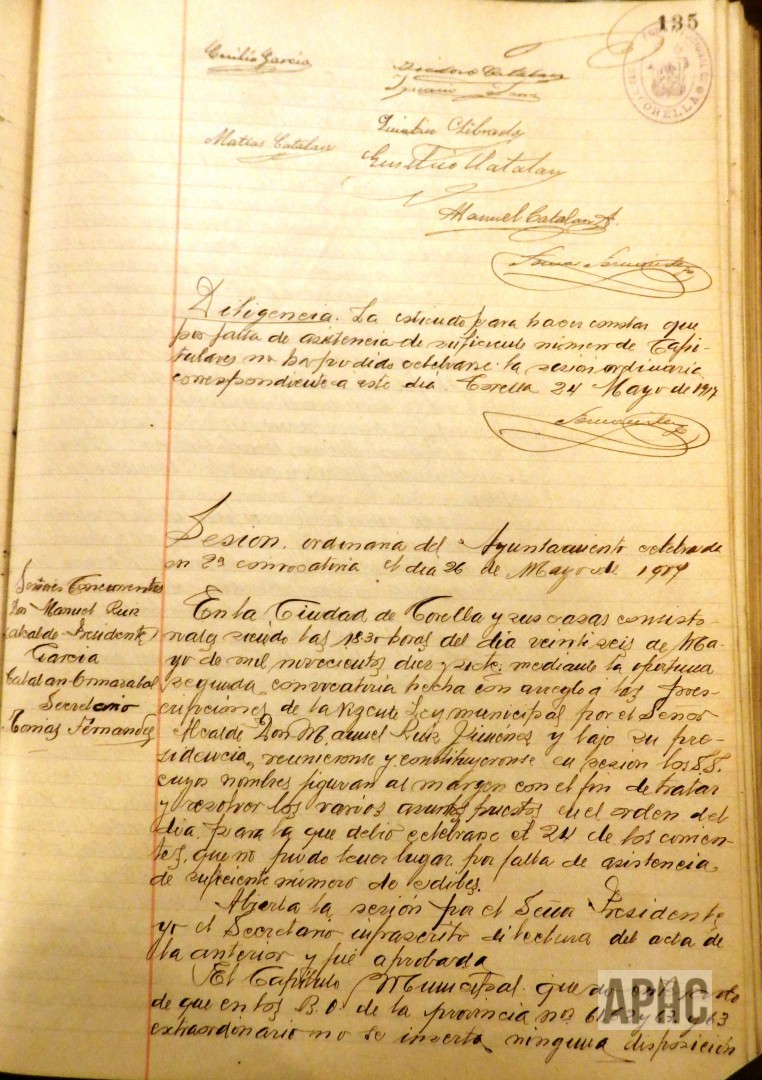 135
Cecilio Garcia
Isidoro Catalan
Matias Catalan
Quintin Librada
Eustasio Catalan
Manuel Catalan A.
Tomas Fernandez
Diligencia. La extiendo para hacer constar que
por falta de asistencia de suficiente número de Capi-
tulares no ha podido celebrarse la sesion ordinaria
correspondiente a este dia Corella 24 Mayo de 1917
Fernandez
Sesion ordinaria del Ayuntamiento celebrada
en 2ª convocatoria el dia 26 de Mayo de 1917
Señores Concurrentes
Don Manuel Ruiz
Alcalde-Presidente
Garcia
Catalan-Ormazabal
Secretario
Tomas Fernandez
En la Ciudad de Corella y sus casas consisto-
riales siendo las 18'30 horas del dia veintiseis de Ma-
yo de mil novecientos diez y siete, mediante la oportuna
segunda convocatoria hecha con arreglo a las pres-
cripciones de la vigente Ley municipal por el Señor
Alcalde Don Manuel Ruiz Jimenez y bajo su pre-
sidencia, reunieronse y constituyeronse en sesion los S.S.
cuyos nombres figuran al margen con el fin de tratar
y resolver los varios asuntos puestos en el orden del
dia, para la que debio celebrarse el 24 de los corrien-
tes, que no pudo tener lugar por falta de asistencia
de suficiente número de ediles.
Abierta la sesión por el Señor Presidente
yo el Secretario infrascrito di lectura del acta de
la anterior y fué aprobada
El Capitulo Municipal quedó
de que en los B.O. de la provincia nos 61, 62 y 63
extraordinario no se inserta ninguna disposición
APHC
CORELLA